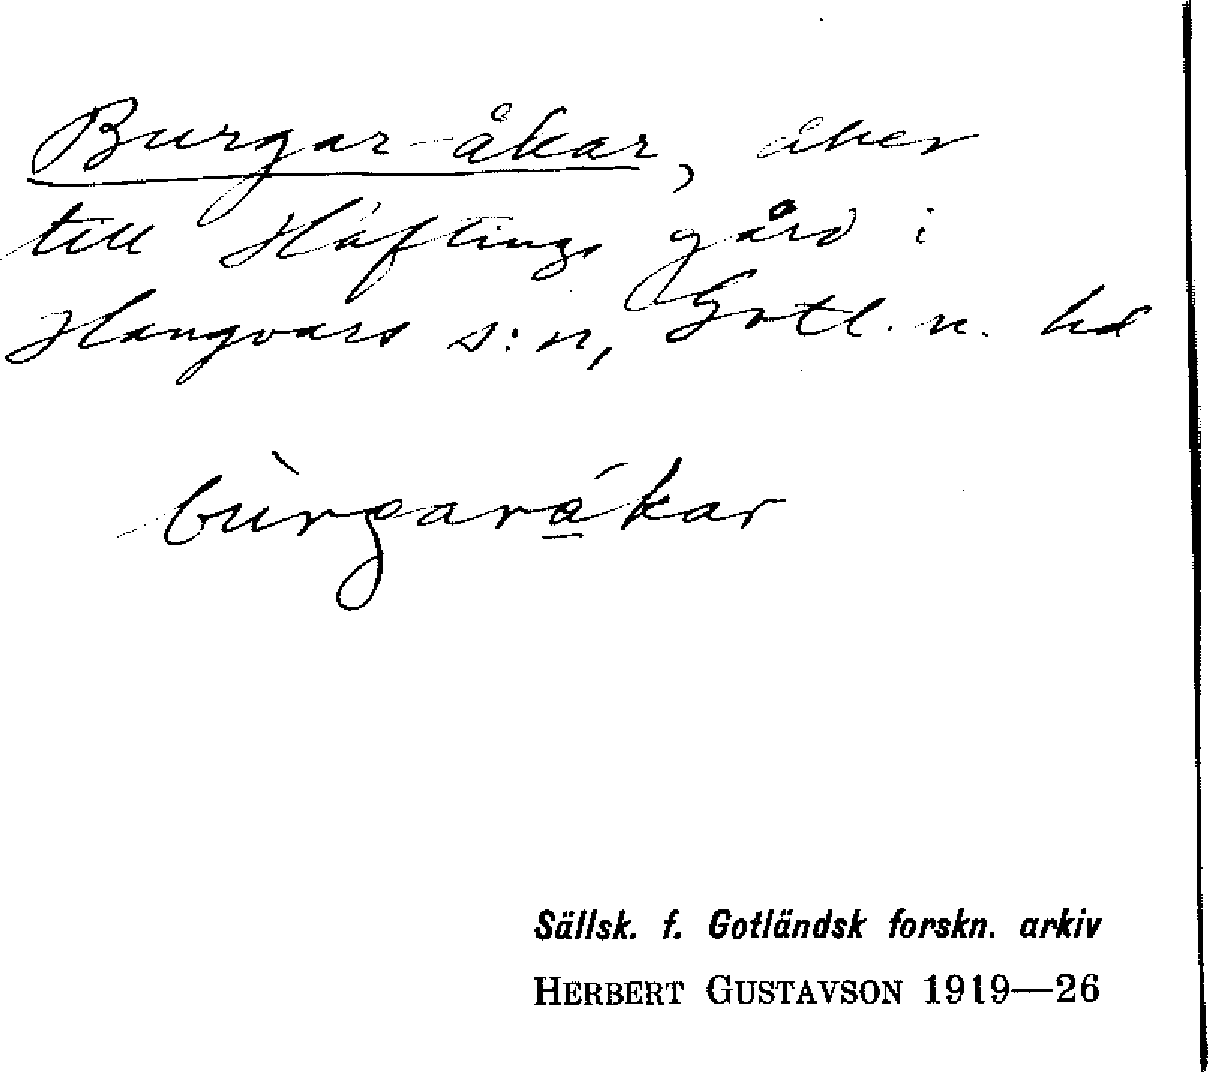 Burgar-åkar, åker
till Häftings gård i
Hangvars s:n, Gotl. n. hd
bùrgaråkar
Sällsk. f. Gotländsk forskn. arkiv
HERBERT GUSTAVSON 1919—26